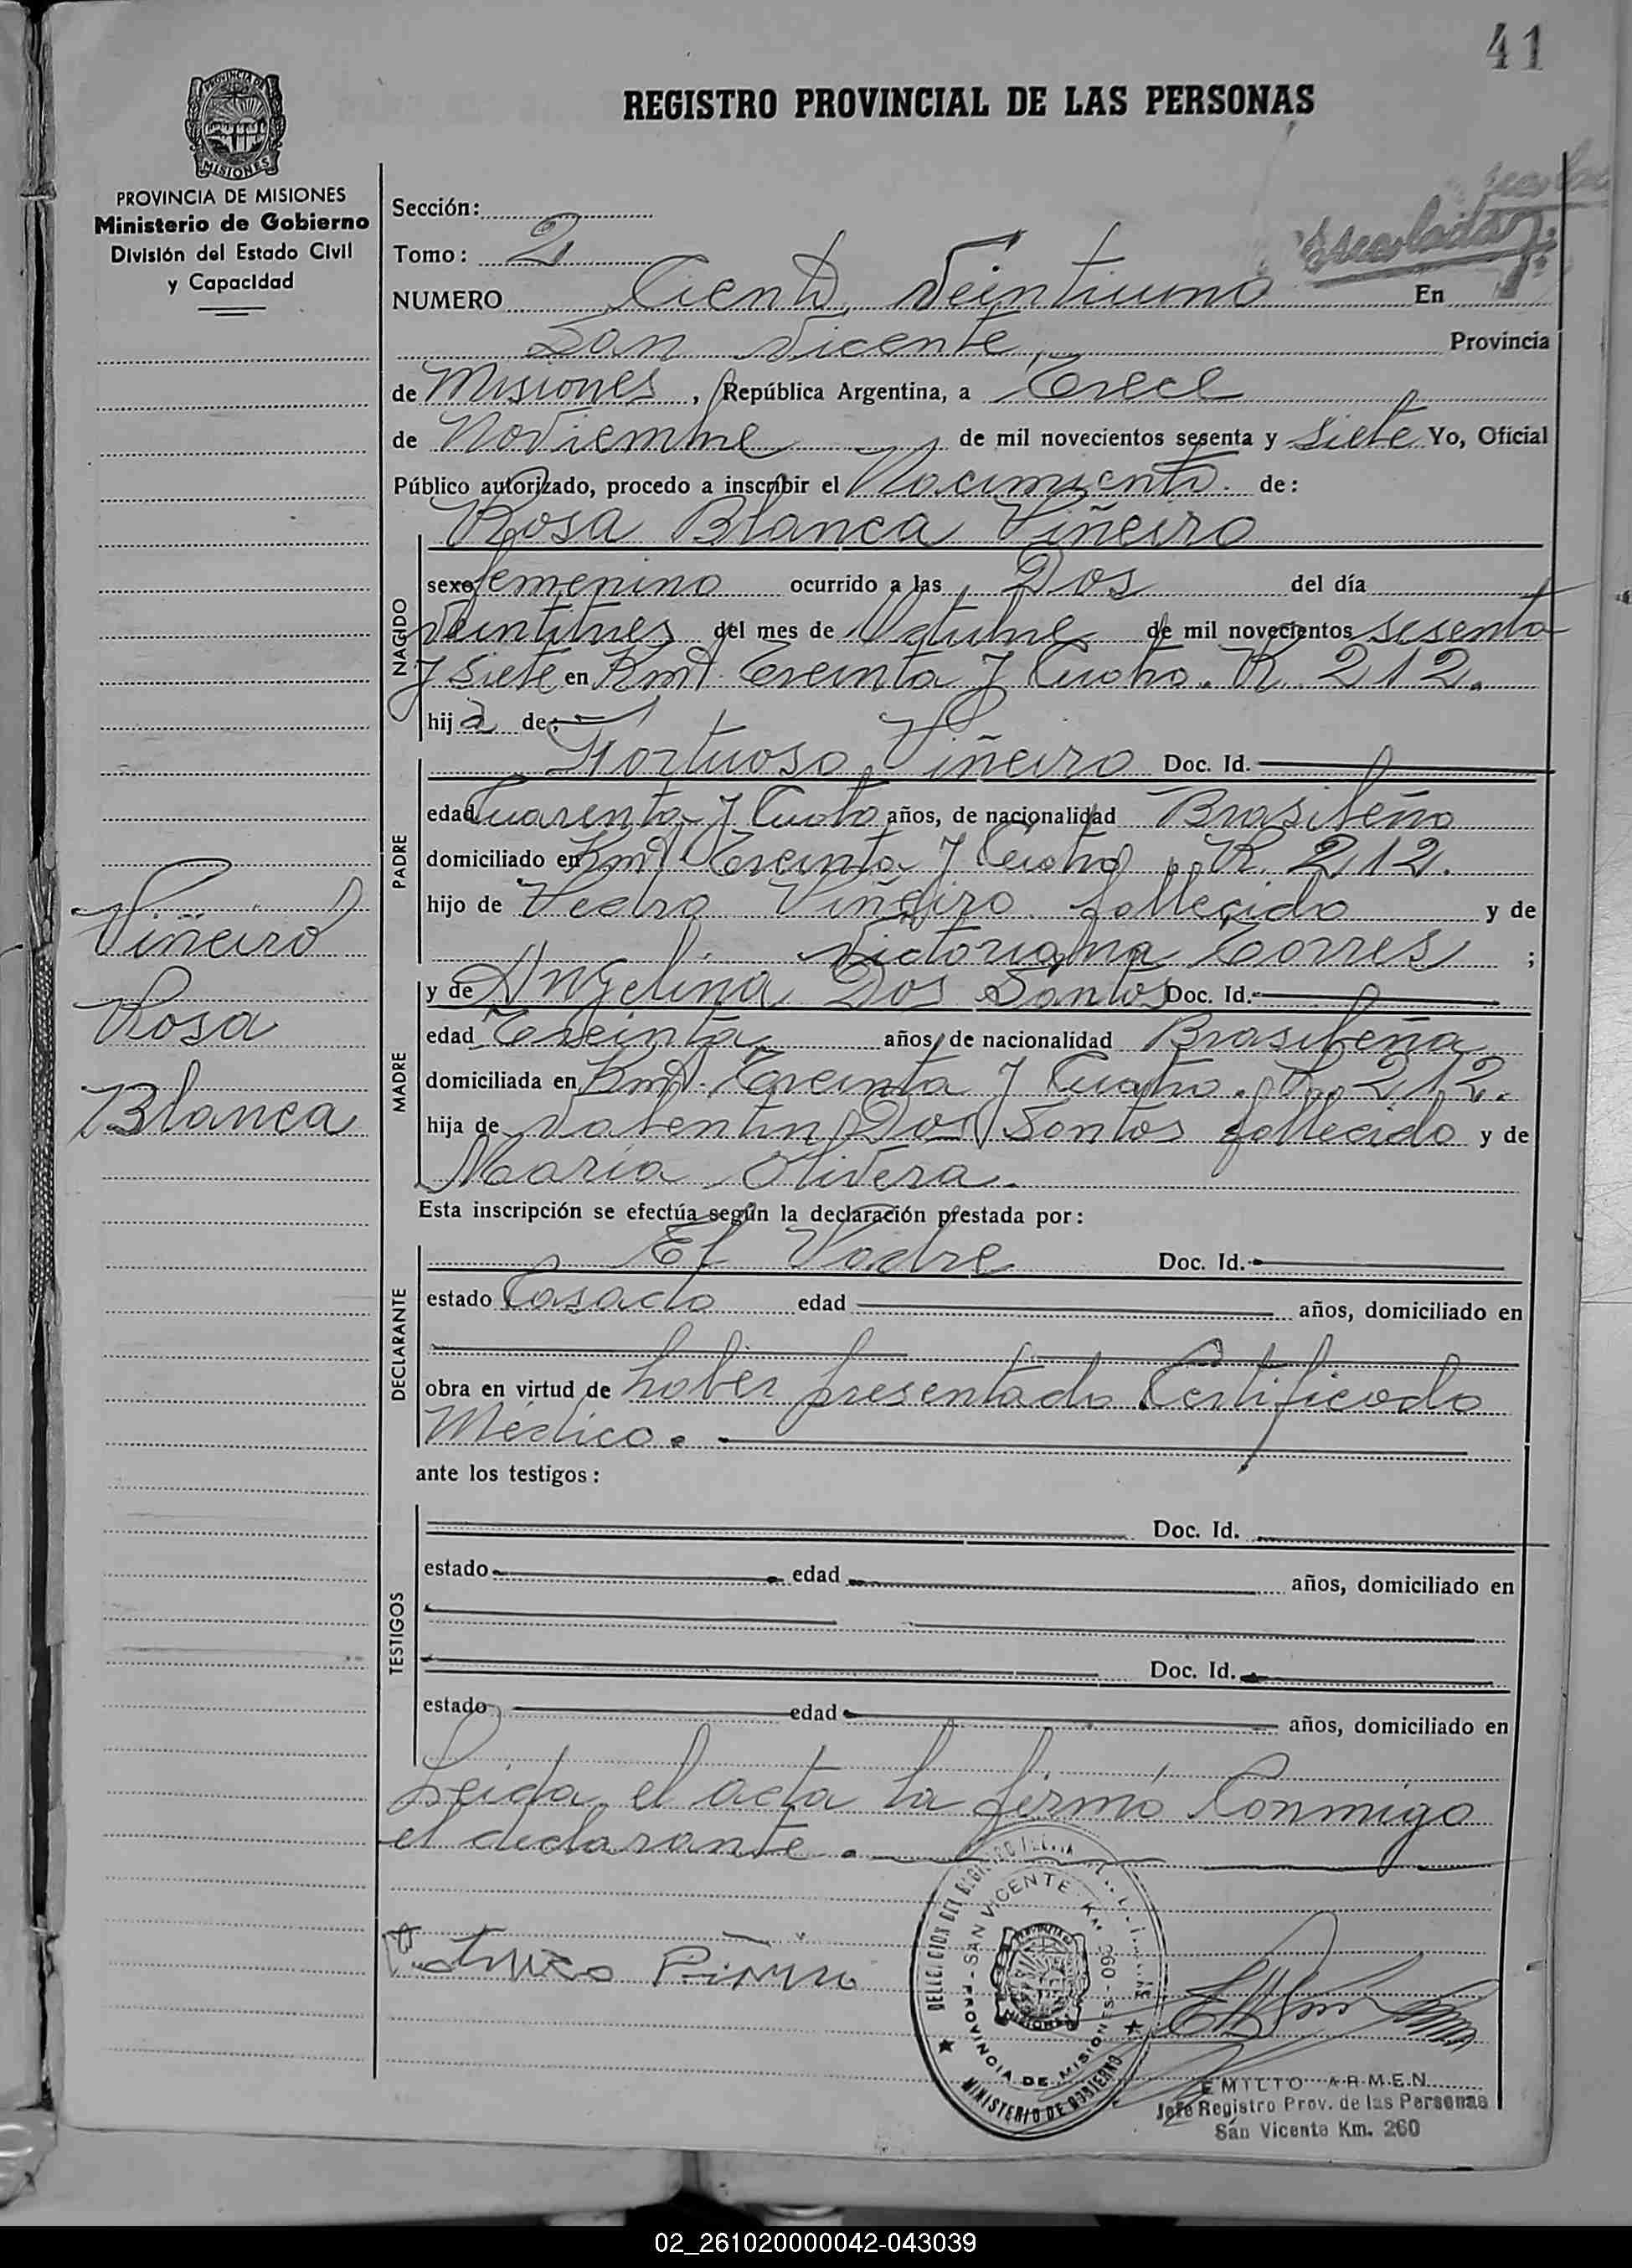 41
REGISTRO PROVINCIAL DE LAS PERSONAS
PROVINCIA DE MISIONES
MISIONES
PROVINCIA DE MISIONES
Ministerio de Gobierno
División del Estado Civil
y Capacidad
Sección:
Tomo: 2
Escolada
NUMERO Ciento Veintiuno En
San Vicente, Provincia
de Misiones, República Argentina, a Trece
de Noviembre de mil novecientos sesenta y siete Yo, Oficial
Público autorizado, procedo a inscribir el Nacimiento de:
Rosa Blanca Piñeiro
NACIDO
sexo femenino ocurrido a las Dos del día
Veintitres del mes de Octubre de mil novecientos sesenta
y siete en Kmt. Treinta y Cuatro. R. 212.
hija de:
PADRE
Piñeiro Doc. Id.
edad Cuarenta y Cuatro años, de nacionalidad Brasileño
domiciliado en Kmt. Treinta y Cuatro R. 212.
hijo de Pedro Piñeiro fallecido y de
Torres ;
MADRE
y de Angelina Dos Santos Doc. Id.
edad Treinta años, de nacionalidad Brasileña
domiciliada en Kmt. Treinta y Cuatro. R. 212.
hija de Valentin Dos Santos fallecido y de
María Olivera.
Esta inscripción se efectúa según la declaración prestada por:
DECLARANTE
El Padre Doc. Id.
estado Casado edad años, domiciliado en
obra en virtud de haber presentado Certificado
Médico.
ante los testigos:
TESTIGOS
Doc. Id.
estado edad años, domiciliado en
Doc. Id.
estado edad años, domiciliado en
Leida el acta la firmó Conmigo
el declarante.
Piñeiro
Rosa
Blanca
SAN VICENTE - KM. 260
PROVINCIA DE MISIONES
MINISTERIO DE GOBIERNO
EMILIO ARMEN
Jefe Registro Prov. de las Personas
San Vicente Km. 260
02_261020000042-043039